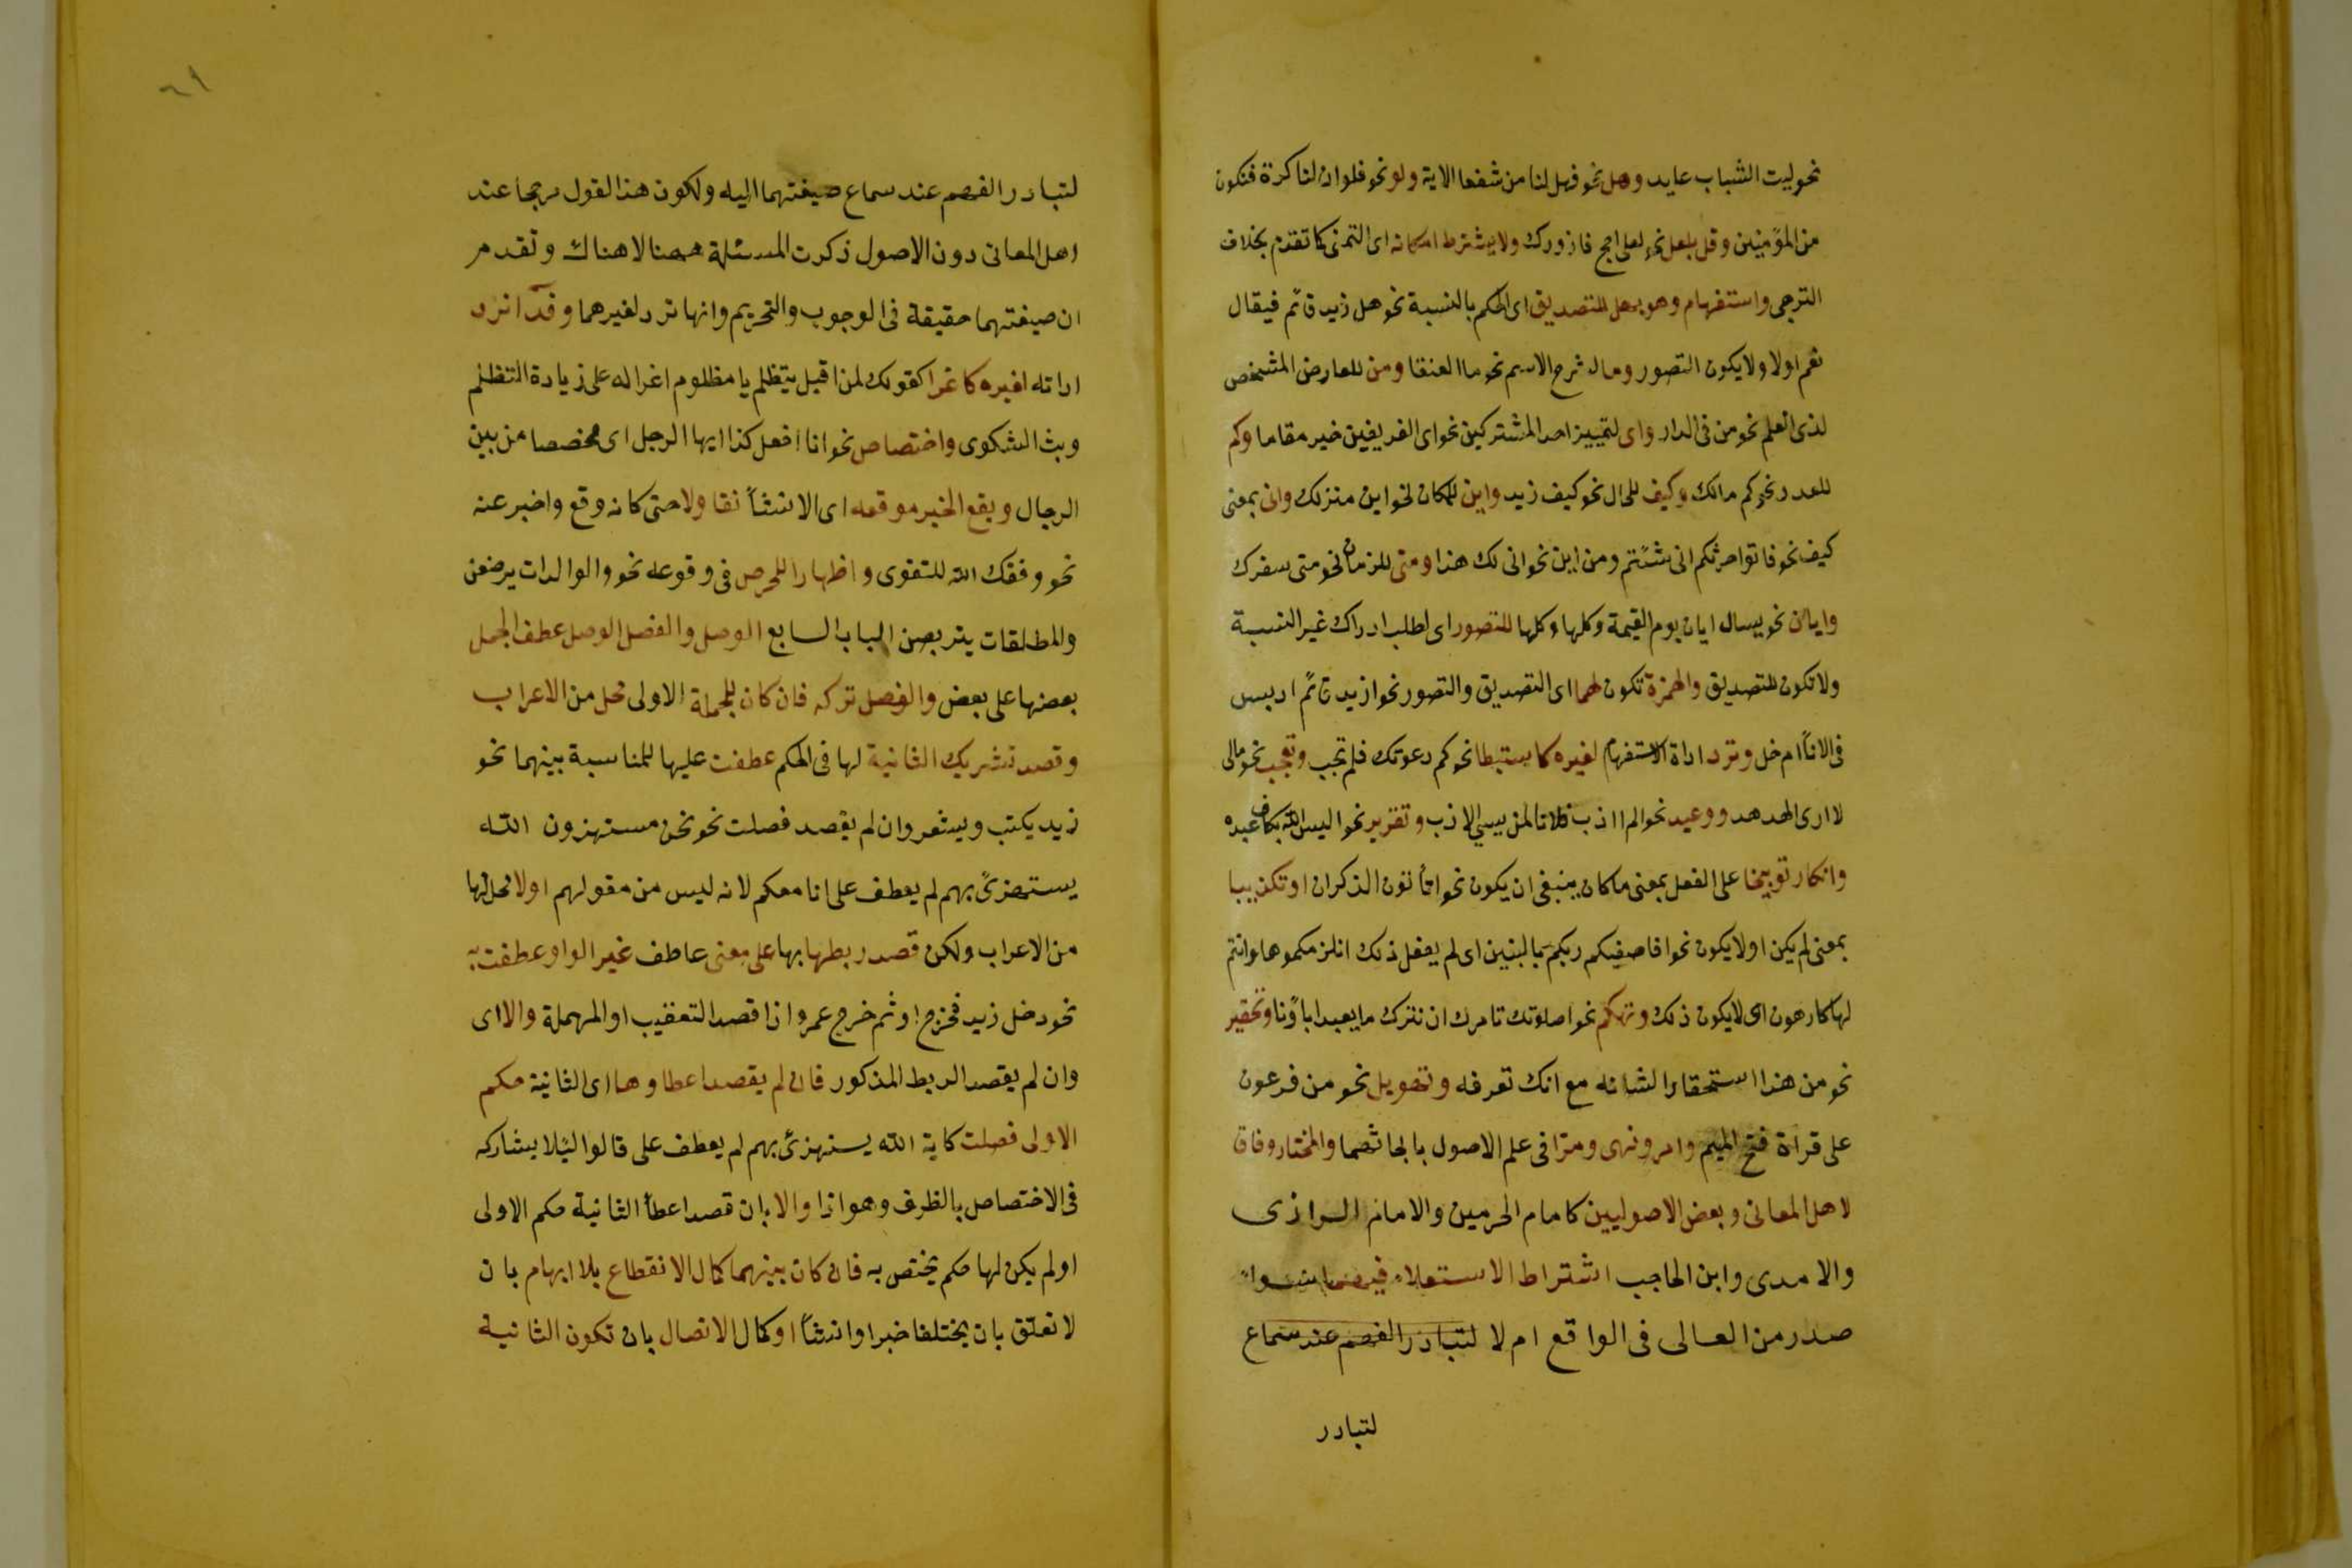 نحو ليت الشباب عايد وهل نحو فهل لنا من شفعا الاية ولو نحو فلو ان لنا كرة فنكون
من المؤمنين وقل بلعل نحو لعلى احج فازورك ولا يشترط امكانه اى التمنى كما تقدم بخلاف
الترجى واستفهام وهو بهل للتصديق اى الحكم بالنسبة نحو هل زيد قائم فيقال
نعم اولا ولا يكون التصور وما لشرح الاسم نحو ما العنقا ومن للعارض المشخص
لذى العلم نحو من فى الدار واى لتمييز احد المشتركين نحو اى الفريقين خير مقاما وكم
للعدد نحو كم مالك وكيف للحال نحو كيف زيد واين للمكان نحو اين منزلك وانى بمعنى
كيف نحو فاتوا حرثكم انى شئتم ومن اين نحو انى لك هذا ومتى للزمان نحو متى سفرك
وايان نحو يسال ايان يوم القيمة وكلها وكلها للتصور اى لطلب ادراك غير النسبة
ولا تكون للتصديق والهمزة تكون لهما اى التصديق والتصور نحو ازيد قائم ادبس
فى الاناأ ام خل وترد اداة الاستفهام لغيره كاستبطا نحو كم دعوتك فلم تجب وتعجب نحو مالى
لا ارى الهدهد ووعيد نحو الم اادب فلانا لمن يسي الادب وتقرير نحو اليس الله بكاف عبده
وانكار توبيخا على الفعل بمعنى ما كان ينبغى ان يكون نحو اتأتون الذكران او تكذيبا
بمعنى لم يكن او لا يكون نحو افاصفيكم ربكم بالبنين اى لم يفعل ذلك انلزمكموها وانتم
لها كارهون اى لا يكون ذلك وتهكم نحو اصلوتك تامرك ان نترك ما يعبد اباؤنا وتحقير
نحو من هذا استحقارا لشانه مع انك تعرفه وتهويل نحو من فرعون
على قراة فتح الميم وامر ونهى ومرا فى علم الاصول بابحاثهما والمختار وفاق
لاهل المعانى وبعض الاصوليين كامام الحرمين والامام الرازى
والامدى وابن الحاجب اشتراط الاستعلاء فيهما سواء
صدر من العالى فى الواقع ام لا لتبادر الفهم عند سماع
لتبادر
٦١
لتبادر الفهم عند سماع صيغتهما اليه ولكون هذا القول مرجحا عند
اهل المعانى دون الاصول ذكرت المسئلة ههنا لا هناك وتقدم
ان صيغتهما حقيقة فى الوجوب والتحريم وانها ترد لغيرهما وقد ترد
اداته لغيره كاغرا كقولك لمن اقبل يتظلم يا مظلوم اغرا له على زيادة التظلم
وبث الشكوى واختصاص نحو انا افعل كذا ايها الرجل اى مخصصا من بين
الرجال ويقع الخبر موقعه اى الانشأ تفا ولا حتى كانه وقع واخبر عنه
نحو وفقك الله للتقوى واظهارا للحرص فى وقوعه نحو والوالدات يرضعن
والمطلقات يتربصن الباب السابع الوصل والفصل الوصل عطف الجمل
بعضها على بعض والفصل تركه فان كان للجملة الاولى محل من الاعراب
وقصد تشريك الثانية لها فى الحكم عطفت عليها للمناسبة بينهما نحو
زيد يكتب ويشعر وان لم يقصد فصلت نحو نحن مستهزون الله
يستهزئ بهم لم يعطف على انا معكم لانه ليس من مقولهم اولا محل لها
من الاعراب ولكن قصد ربطها بها على معنى عاطف غير الواو عطفت به
نحو دخل زيد فخرج او ثم خرج عمرو اذا قصد التعقيب او المهملة والا اى
وان لم يقصد الربط المذكور فان لم يقصد اعطاوها اى الثانية حكم
الاولى فصلت كاية الله يستهزئ بهم لم يعطف على قالوا ليلا يشاركه
فى الاختصاص بالظرف وهو اذا والا بان قصد اعطأ الثانية حكم الاولى
او لم يكن لها حكم يختص به فان كان بينهما كمال الانقطاع بلا ابهام بان
لا تعلق بان يختلفا خبرا وانشأ او كمال الاتصال بان تكون الثانية